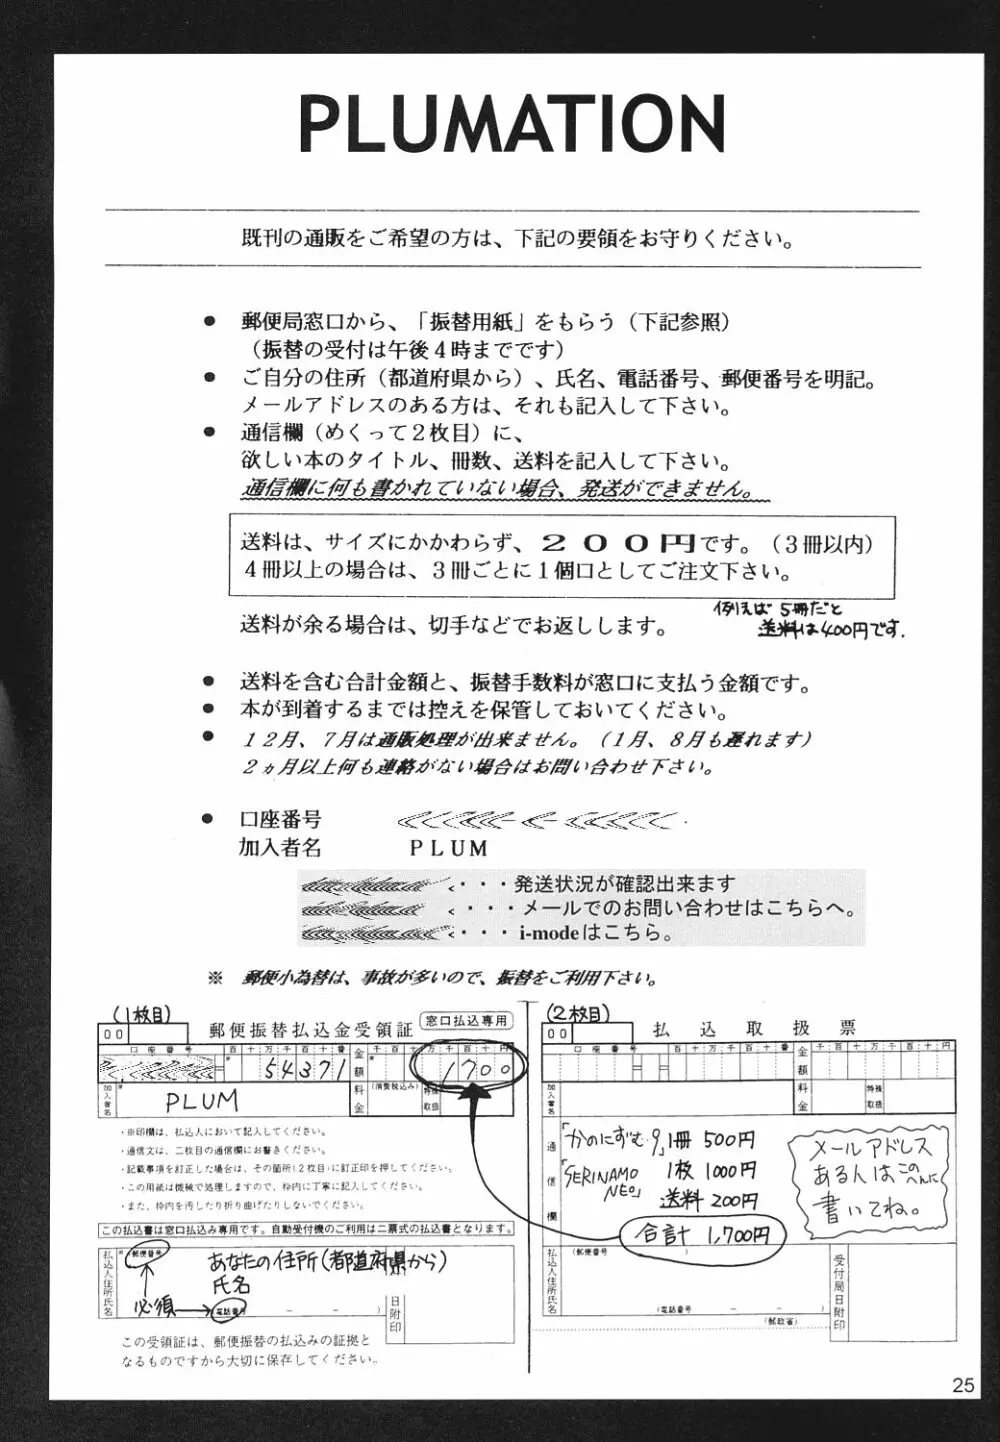 PLUMATION
既刊の通販をご希望の方は、下記の要領をお守りください。
● 郵便局窓口から、「振替用紙」をもらう（下記参照）
（振替の受付は午後４時までです）
● ご自分の住所（都道府県から）、氏名、電話番号、郵便番号を明記。
メールアドレスのある方は、それも記入して下さい。
● 通信欄（めくって２枚目）に、
欲しい本のタイトル、冊数、送料を記入して下さい。
通信欄に何も書かれていない場合、発送ができません。
送料は、サイズにかかわらず、２００円です。（３冊以内）
４冊以上の場合は、３冊ごとに１個口としてご注文下さい。
例えば 5冊だと
送料は400円です.
送料が余る場合は、切手などでお返しします。
● 送料を含む合計金額と、振替手数料が窓口に支払う金額です。
● 本が到着するまでは控えを保管しておいてください。
● １２月、７月は通販処理が出来ません。（１月、８月も遅れます）
２ヵ月以上何も連絡がない場合はお問い合わせ下さい。
● 口座番号
加入者名 ＰＬＵＭ
<・・・発送状況が確認出来ます
<・・・メールでのお問い合わせはこちらへ。
<・・・i-modeはこちら。
※ 郵便小為替は、事故が多いので、振替をご利用下さい。
(1枚目)
00 郵便振替払込金受領証 窓口払込専用
口座番号 百十万千百十番 金額 千百十万千百十円
54371 1700
加入者名 PLUM 料金 (消費税込み) 特殊取扱
・※印欄は、払込人において記入してください。
・通信文は、二枚目の通信欄にお書きください。
・記載事項を訂正した場合は、その箇所(２枚目)に訂正印を押してください。
・この用紙は機械で処理しますので、枠内に丁寧に記入してください。
・また、枠内を汚したり折り曲げたりしないでください。
この払込書は窓口払込み専用です。自動受付機のご利用は二票式の払込書となります。
払込人住所氏名
※郵便番号
あなたの住所(都道府県から)
氏名
必須
電話番号 － －
日附印
この受領証は、郵便振替の払込みの証拠と
なるものですから大切に保存してください。
(2枚目)
00 払込取扱票
口座番号 百十万千百十番 金額 千百十万千百十円
加入者名 料金 特殊取扱
通信欄
「かのにずむ.9」1冊 500円
「SERINAMO NEO」 1枚 1000円
送料 200円
合計 1,700円
メールアドレス
ある人はこのへんに
書いてね。
払込人住所氏名
(郵便番号 )
(電話番号 － － )
(郵政省)
受付局日附印
25